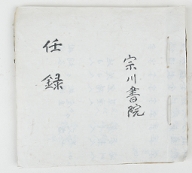 宗川書院
任録